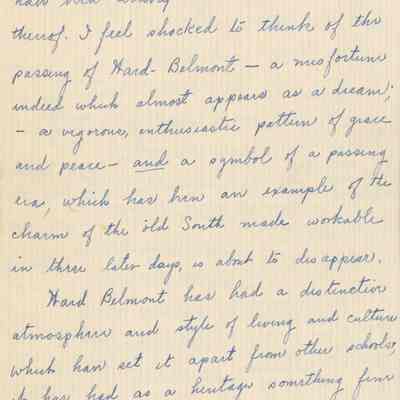 have been
thereof. I feel shocked to think of the
passing of Ward-Belmont — a misfortune
indeed which almost appears as a dream;
— a vigorous, enthusiastic pattern of grace
and peace — and a symbol of a passing
era, which has been an example of the
charm of the old South made workable
in these later days, is about to disappear.
Ward Belmont has had a distinctive
atmosphere and style of living and culture
which have set it apart from other schools;
it has had as a heritage something fine